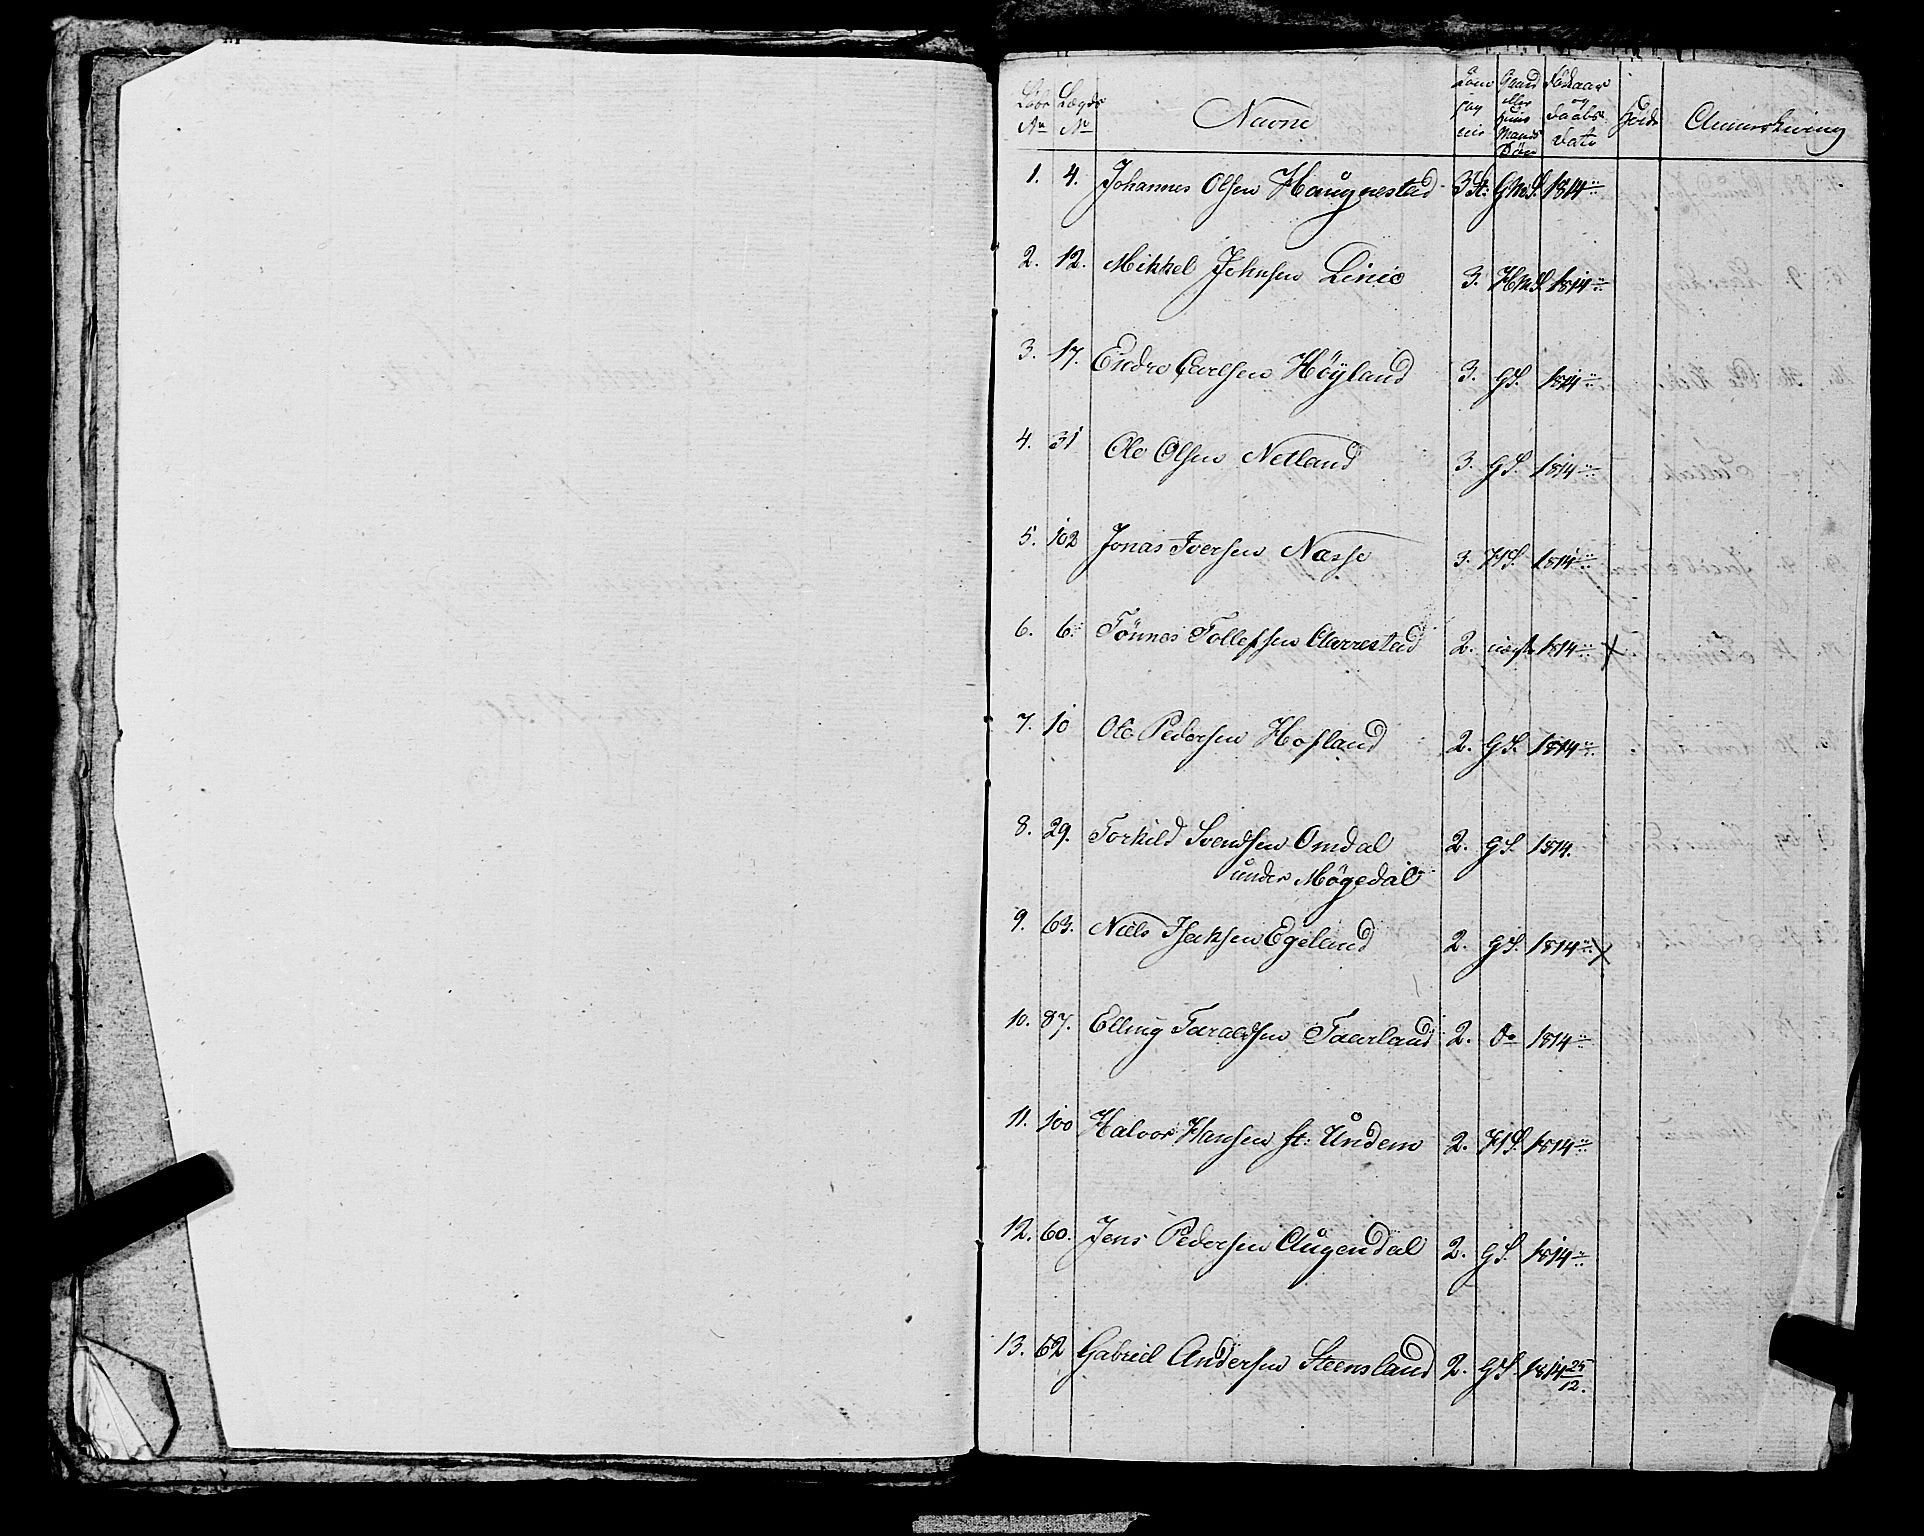 Løbe No Lægds No Navne Gaard eller Huus Mands Søn Fødeaar og Daabs Datu Høide Anmærkning
1. 4. Johannes Olsen Haugnestad 3 St: GMS. 1814
2. 12. Mikkel Johnsen Linie 3. HMS. 1814
3. 17. Endre Carlsen Høyland 3. GS. 1814
4. 31 Ole Olsen Netland 3. GS. 1814
5. 102 Jonas Iversen Næsse 3. HS. 1814
6. 6. Tønnes Tollefsen Aarrestad 2. 1814 X
7. 10 Ole Pedersen Hofland 2. GS. 1814
8. 29. Torkild Svendsen Omdal 2. GS. 1814.
under Møgedal
9. 63. Niels Isaksen Egeland 2. GS. 1814 X
10. 87. Elling Taraldsen Taarland 2. Do 1814
11. 100 Halvor Hansen st: Undem 2. HS. 1814
12. 60. Jens Pedersen Augendal 2. GS. 1814
13. 62 Gabriel Andersen Steensland 2. GS. 1814 25/12.